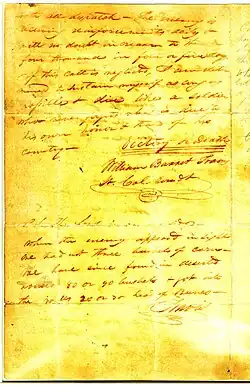 with all dispatch — The enemy is
receiving reinforcements daily &
will no doubt increase to
four thousand in four or five days
If this call is neglected, I am deter
to sustain myself as long
possible & die like a soldier
who never forgets what is due to
his own honor & that of his
country —
Victory or Death
William Barret Travis
Lt. Col. comdt
P.S. The Lord is on our side —
When the enemy appeared in sight
we had not three bushels of corn —
We have since found in deserted
houses 80 or 90 bushels & got into
the walls 20 or 30 head of Beeves —
Travis